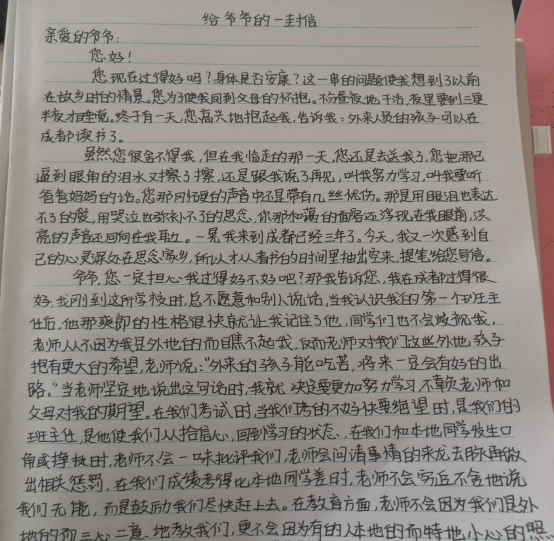 给爷爷的一封信
亲爱的爷爷:
您好!
您现在过得好吗?身体是否安康?这一串的问题使我想到了以前
在故乡时的情景。您为了使我回到父母的怀抱。不分昼夜地干活,夜里要到三更
半夜才睡觉。终于有一天,您高兴地抱起我,告诉我:外来人员的孩子可以在
成都读书了。
虽然您很舍不得我,但在我临走的那一天,您还是去送我了,您把那已
逼到眼角的泪水对擦了擦,还是跟我说了再见,叫我努力学习,叫我要听
爸爸妈妈的话。您那刚硬的声音中还是带有几丝忧伤。那是用眼泪也表达
不了的爱,用哭泣也弥补不了的思念。你那和蔼的面容还浮现在我眼前,洪
亮的声音还回响在我耳边。一晃我来到成都已经三年了。今天,我又一次感到自
己的心灵深处在思念家乡,所以才从看书的时间里抽出空来,提笔给您写信。
爷爷,您一定担心我过得好不好吧?那我告诉您,我在成都过得很
好。我刚到这所学校时,总不愿意和别人说话,当我认识我的第一个班主
任后,他那爽朗的性格很快就让我记住了他,同学们也不会歧视我,
老师从不因为我是外地的而瞧不起我,反而老师对我们这些外地孩子
抱有更大的希望,老师说:“外来的孩子能吃苦,将来一定会有好的出
路。”当老师坚定地说出这句话时,我就决定要更加努力学习,不辜负老师和
父母对我的期望。在我们考试时,当我们考的不好快要绝望时,是我们的
班主任,是他使我们从拾信心,回到学习的状态,在我们和本地同学发生口
角或挣执时,老师不会一味批评我们,老师会问清事情的来龙去脉再做
出相关惩罚,在我们成绩考得比本地同学差时,老师不会写后不舍地说
我们无能,而是鼓励我们尽快赶上去。在教育方面,老师不会因为我们是外
地的而三心二意地教我们,更不会因为有的人本地的而特地小心的照